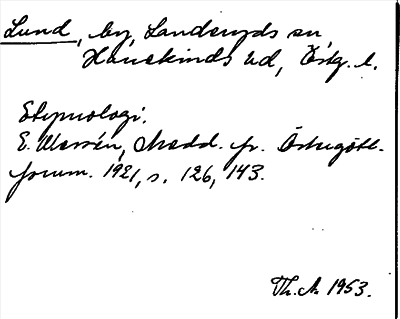 Lund, by, Landeryds sn
Hanekinds hd, Östg. l.
Etymologi.
E. Wessén, Medd. fr. Östergötl.
fornm. 1921, s. 126, 143.
Th. A. 1953.